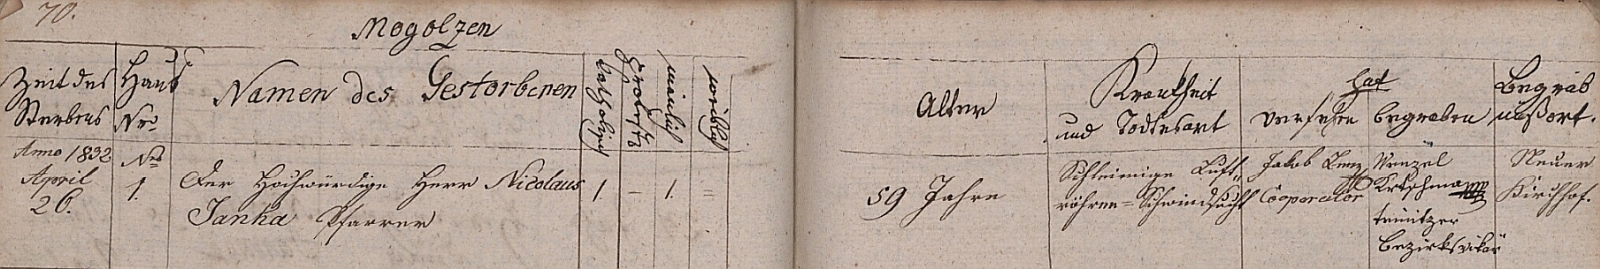 70.
Mogolzen
Zeit des
Sterbens
Haus
Nro
Namen des Gestorbenen
katholisch
protest
mänlich
weiblich
Alter
Krankheit
und Todtesart
hat
versehen
begraben
Begräb
nißort.
Anno 1832
April
26.
Nro
1.
Der Hochwürdige Herr Nicolaus
Janka Pfarrer
1
–
1.
=
59 Jahre
Schleimige Luft-
röhren=Schwindsucht
Jakob
Cooperator
Wenzel
Bezirksvikär
Neuer
Kirchhof.